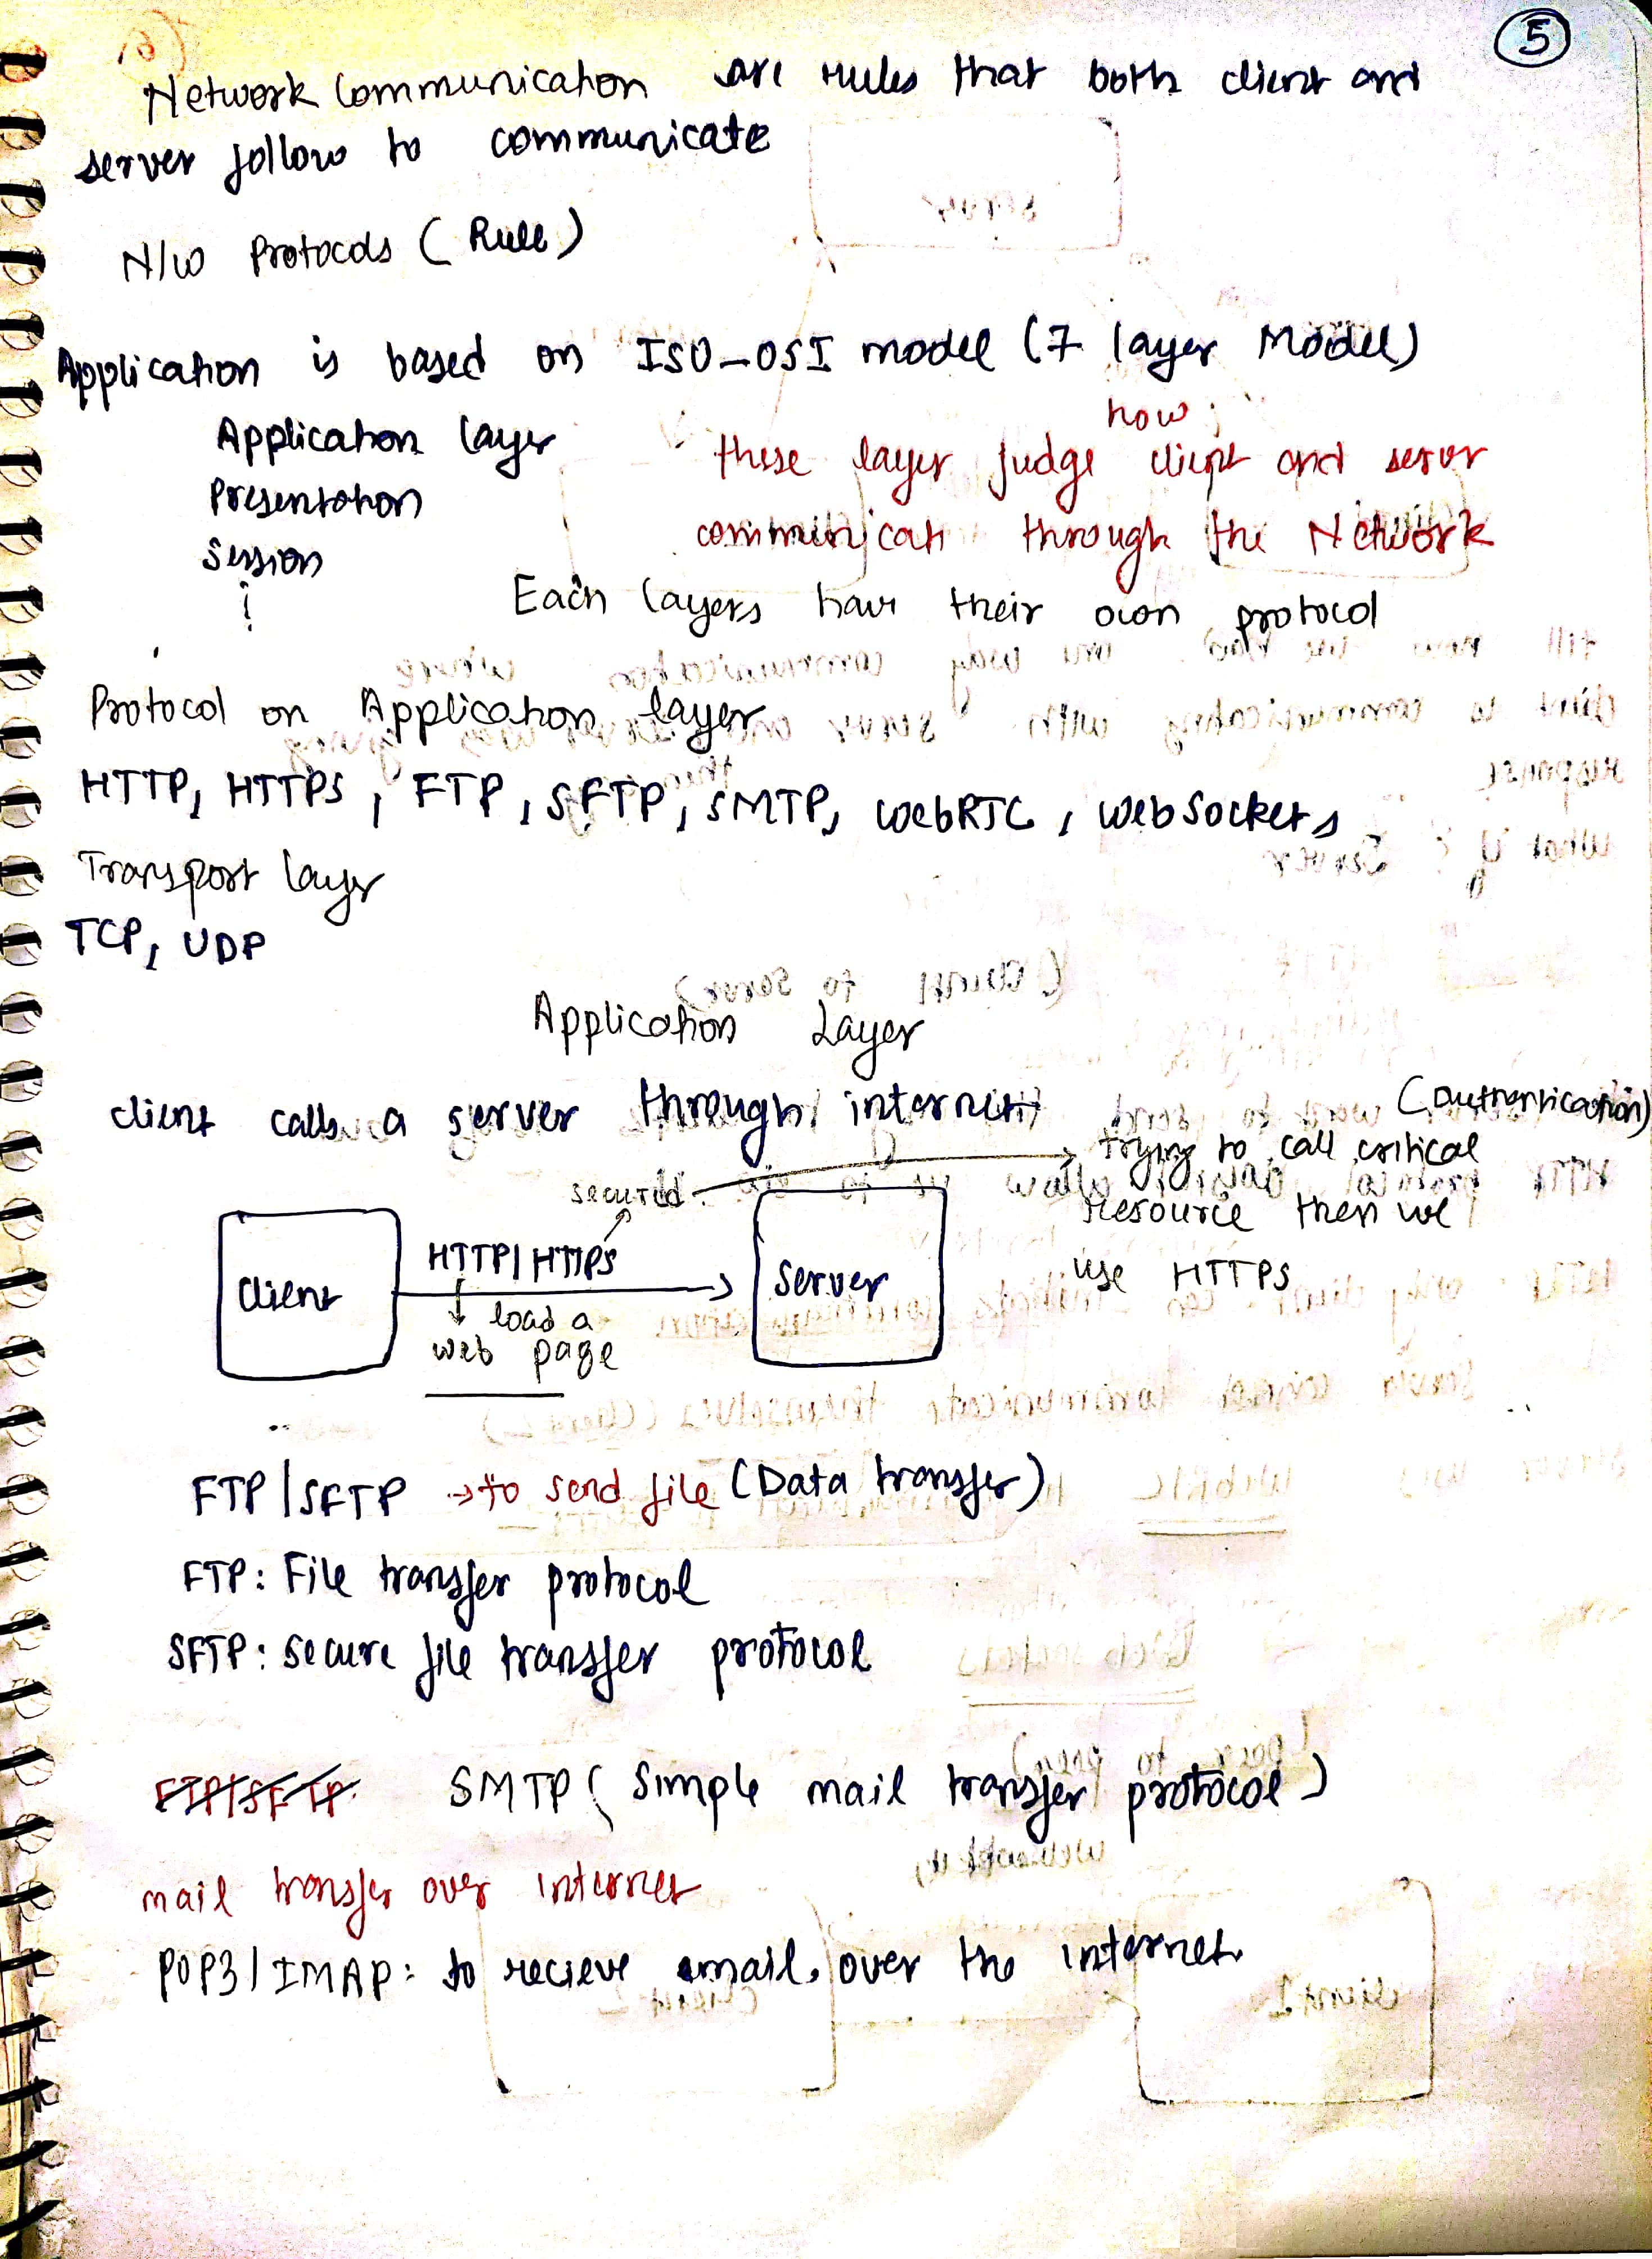 5
Network Communication are rules that both client and
server follow to communicate
N/w Protocols (Rule)
Application is based on ISO-OSI model (7 layer Model)
Application layer
Presentation
Session
how
these layer judge client and server
communicati through the Network
Each layers have their own protocol
Protocol on Application layer
HTTP, HTTPS, FTP, SFTP, SMTP, WebRTC, WebSockets
Transport layer
TCP, UDP
Application Layer
client calls a server through internet
(Authentication)
trying to call critical
resource then we
use HTTPS
secured
Client
HTTP/HTTPS
load a
web page
Server
FTP/SFTP → to send file (Data transfer)
FTP: File transfer protocol
SFTP: Secure file transfer protocol
FTP/SFTP SMTP (Simple mail transfer protocol)
mail transfer over internet
POP3/IMAP: to recieve email over the internet.